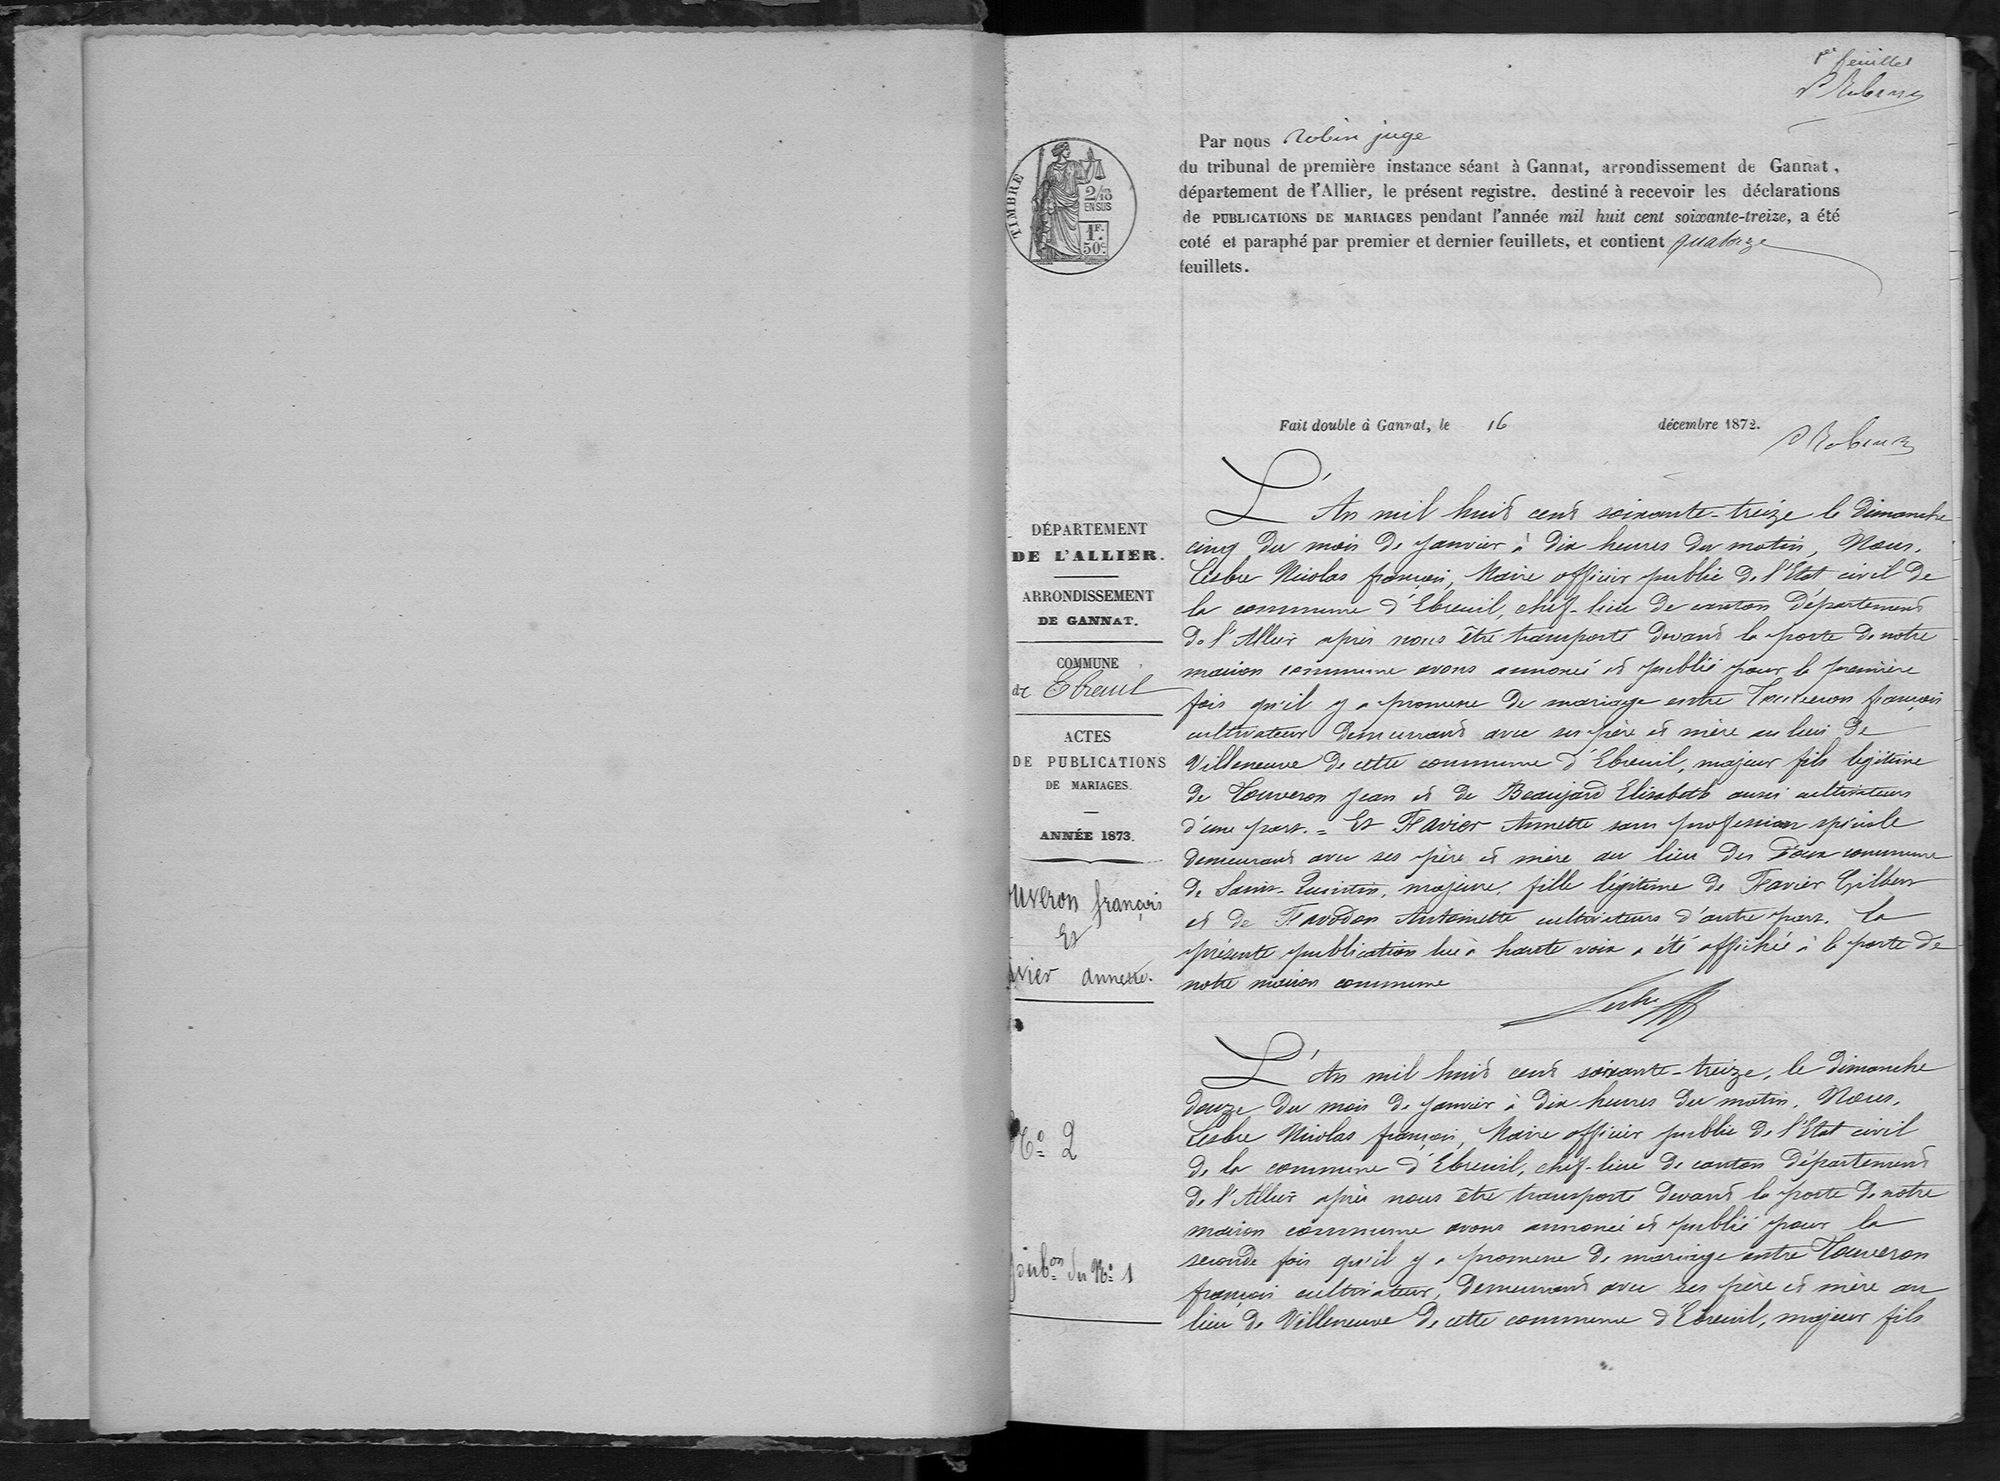 1er feuillet
P Robin
Par nous Robin juge
du tribunal de première instance séant à Gannat, arrondissement de Gannat,
département de l'Allier, le présent registre, destiné à recevoir les déclarations
de PUBLICATIONS DE MARIAGES pendant l'année mil huit cent soixante-treize, a été
coté et paraphé par premier et dernier feuillets, et contient quatorze
feuillets.
TIMBRE
2/10
EN SUS
1F.
50c
Fait double à Gannat, le 16 décembre 1872.
P Robin
DÉPARTEMENT
DE L'ALLIER.
ARRONDISSEMENT
DE GANNAT.
COMMUNE
de Ebreuil
ACTES
DE PUBLICATIONS
DE MARIAGES.
ANNÉE 1873.
uveron françois
Et
avier annette.
L'An mil huit cent soixante-treize le dimanche
cinq du mois de janvier à dix heures du matin, Nous,
Lesbre Nicolas françois, Maire officier public de l'Etat civil de
la commune d'Ebreuil, chef-lieu de canton département
de l'Allier après nous être transporté devant la porte de notre
maison commune avons annoncé et publié pour la première
fois qu'il y a promesse de mariage entre Touveron françois
cultivateur demeurant avec ses père et mère au lieu de
Villeneuve de cette commune d'Ebreuil, majeur fils légitime
de Touveron Jean et de Beaujard Elisabeth aussi cultivateurs
d'une part. = Et Favier Annette sans profession spéciale
demeurant avec ses père et mère au lieu des commune
de Saint-Quintin, majeure, fille légitime de Favier Gilbert
et de Antoinette cultivateurs d'autre part. La
présente publication lue à haute voix a été affichée à la porte de
notre maison commune
Lesbre
No 2
du No 1
L'An mil huit cent soixante-treize, le dimanche
douze du mois de janvier à dix heures du matin, Nous,
Lesbre Nicolas françois, Maire officier public de l'Etat civil
de la commune d'Ebreuil, chef-lieu de canton département
de l'Allier après nous être transporté devant la porte de notre
maison commune avons annoncé et publié pour la
seconde fois qu'il y a promesse de mariage entre Touveron
françois cultivateur, demeurant avec ses père et mère au
lieu de Villeneuve de cette commune d'Ebreuil, majeur fils